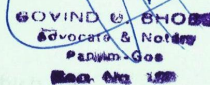 GOVIND G. BHOBE
Advocate & Notary
Panjim-Goa
Reg. No.